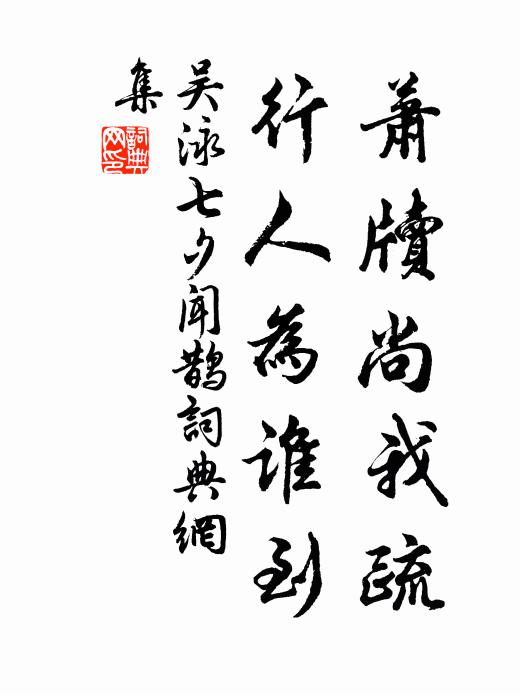 蕭牘尚我疏
行人為誰到
吴泳七夕聞鵲詞典網
集
詞典
网印